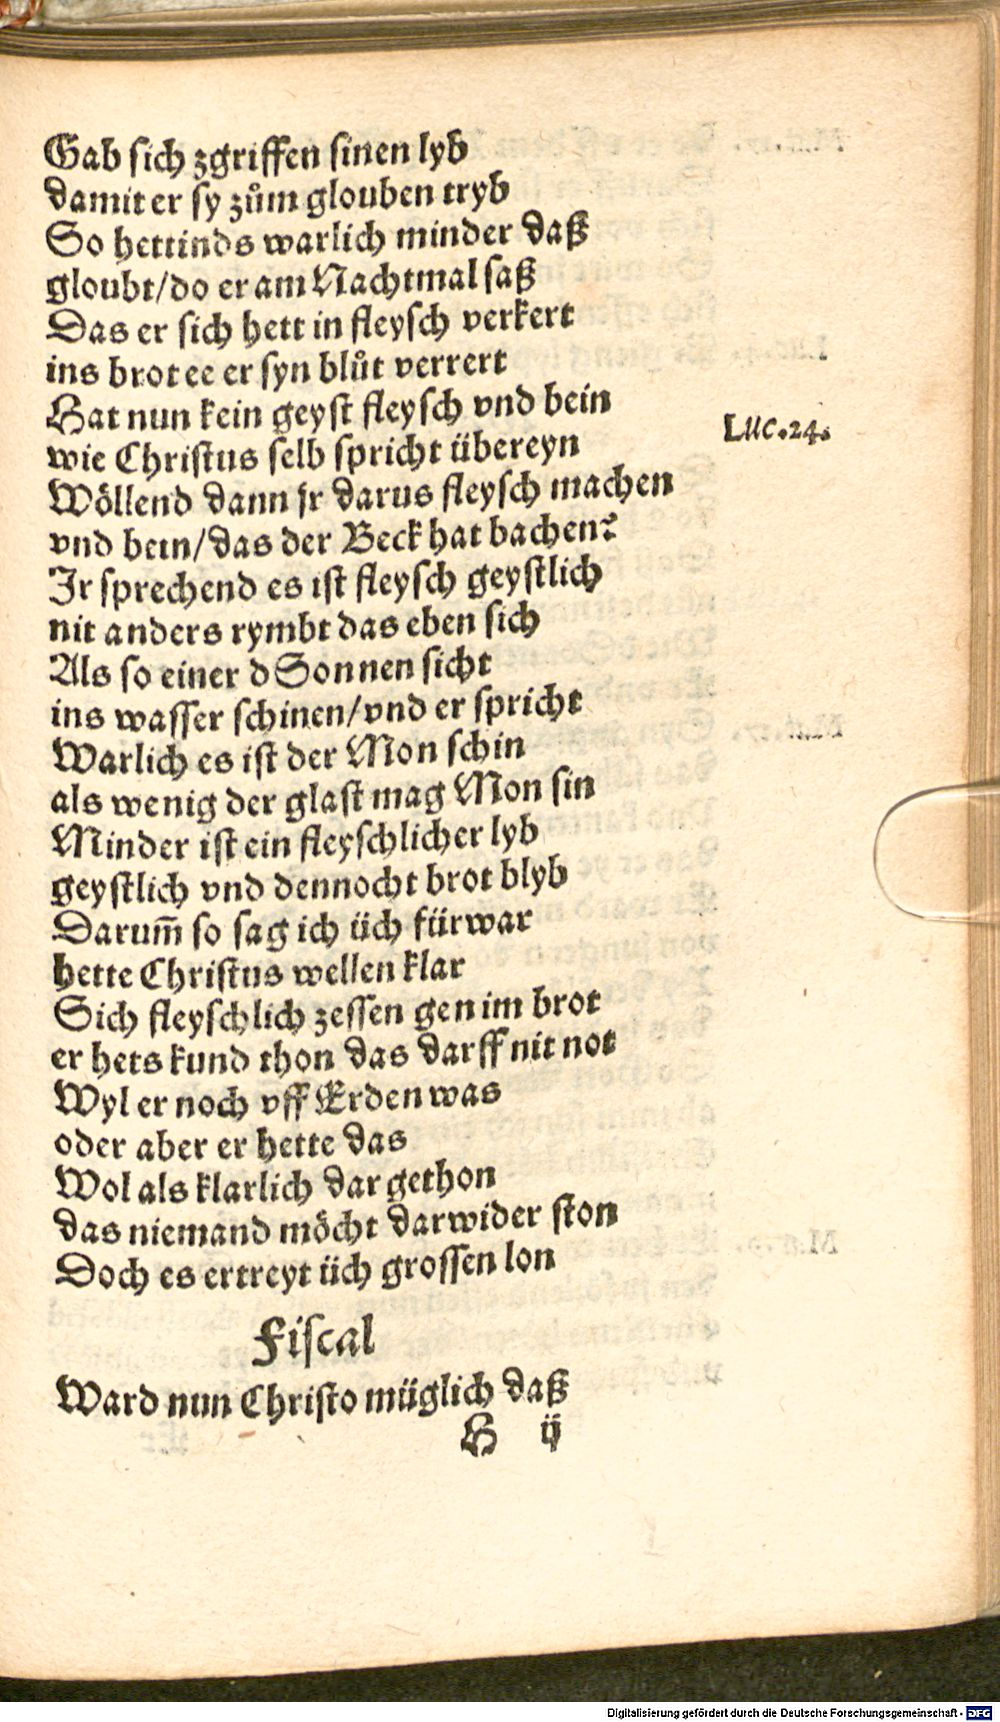 Gab sich zgriffen sinen lyb
damit er sy zům glouben tryb
So hettinds warlich minder daß
gloubt/do er am Nachtmal saß
Das er sich hett in fleysch verkert
ins brot ee er syn blůt verrert
Hat nun kein geyst fleysch vnd bein
Luc.24.
wie Christus selb spricht übereyn
Wöllend dann jr darus fleysch machen
vnd bein/das der Beck hat bachen?
Ir sprechend es ist fleysch geystlich
nit anders rymbt das eben sich
Als so einer d Sonnen sicht
ins wasser schinen/vnd er spricht
Warlich es ist der Mon schin
als wenig der glast mag Mon sin
Minder ist ein fleyschlicher lyb
geystlich vnd dennocht brot blyb
Darum̃ so sag ich üch fürwar
hette Christus wellen klar
Sich fleyschlich zessen gen im brot
er hets kund thon das darff nit not
Wyl er noch vff Erden was
oder aber er hette das
Wol als klarlich dar gethon
das niemand möcht darwider ston
Doch es ertreyt üch grossen lon
Fiscal
Ward nun Christo müglich daß
H ij
Digitalisierung gefördert durch die Deutsche Forschungsgemeinschaft - DFG